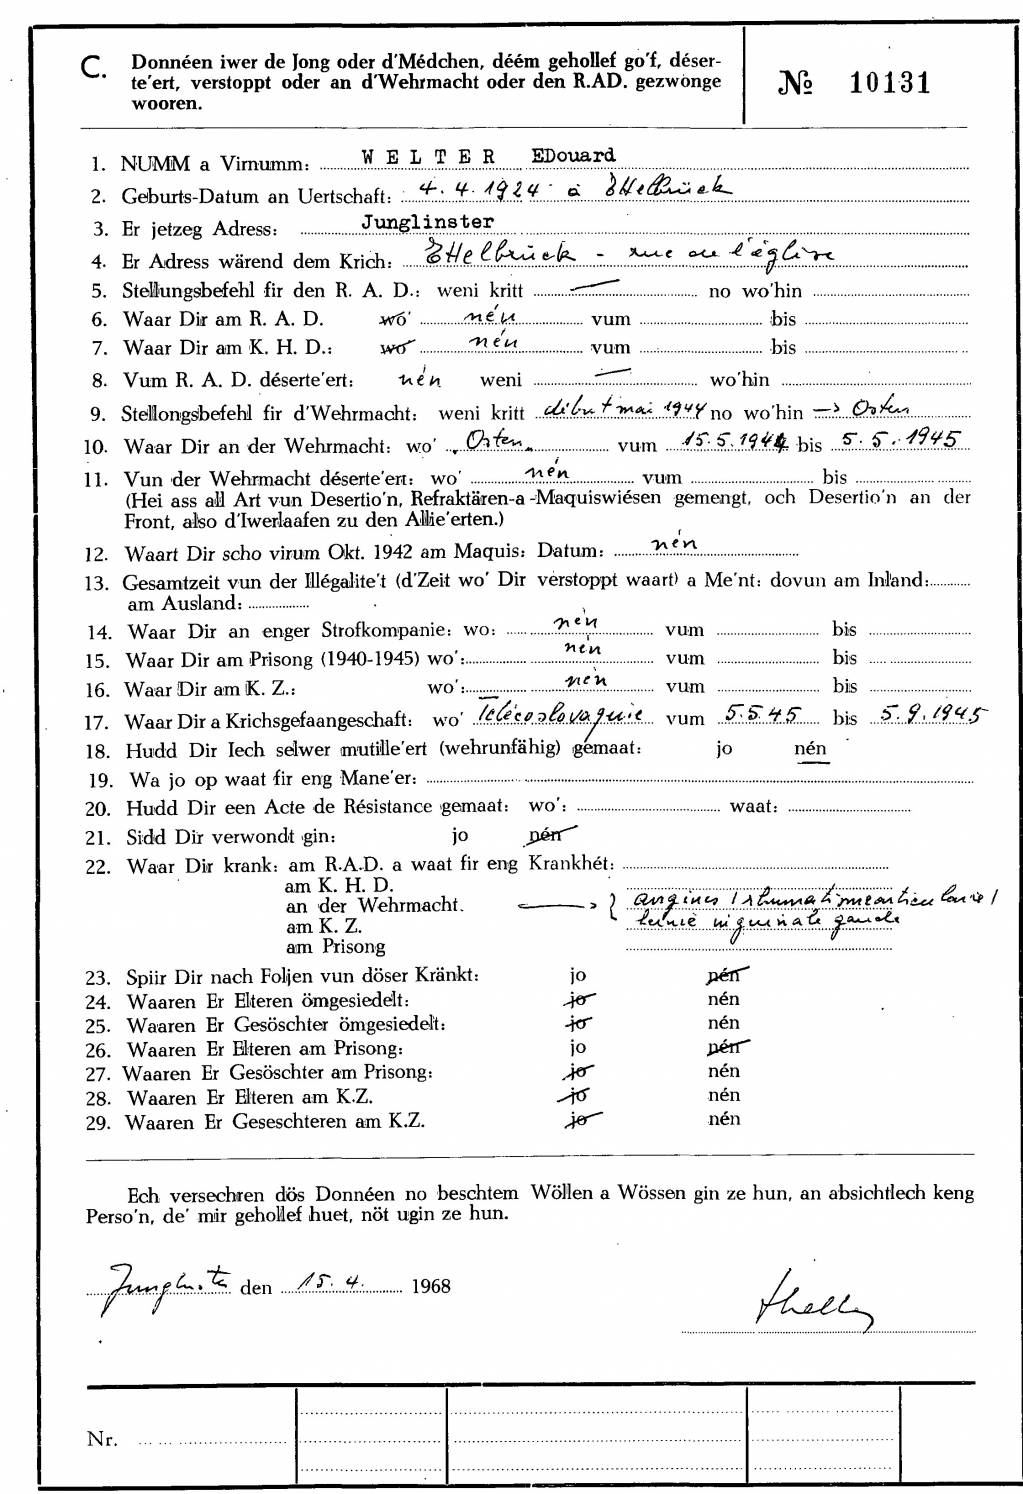 C. Donnéen iwer de Jong oder d'Médchen, déém gehollef go'f, déser-
te'ert, verstoppt oder an d'Wehrmacht oder den R.AD. gezwonge
wooren.
№ 10131
1. NUMM a Virnumm: WELTER EDouard
2. Geburts-Datum an Uertschaft: 4.4.1924 à Ettelbrück
3. Er jetzeg Adress: Junglinster
4. Er Adress wärend dem Krich: Ettelbrück - rue de l'église
5. Stellungsbefehl fir den R. A. D.: weni kritt — no wo'hin
6. Waar Dir am R. A. D. wo' nén vum bis
7. Waar Dir am K. H. D.: wo' nén vum bis
8. Vum R. A. D. déserte'ert: nén weni — wo'hin
9. Stellongsbefehl fir d'Wehrmacht: weni kritt début mai 1944 no wo'hin → Osten
10. Waar Dir an der Wehrmacht: wo' „Osten„ vum 15.5.1944 bis 5.5.1945
11. Vun der Wehrmacht déserte'ert: wo' nén vum bis
(Hei ass all Art vun Desertio'n, Refraktären-a -Maquiswiésen gemengt, och Desertio'n an der
Front, also d'Iwerlaafen zu den Allie'erten.)
12. Waart Dir scho virum Okt. 1942 am Maquis: Datum: nén
13. Gesamtzeit vun der Illégalite't (d'Zeit wo' Dir verstoppt waart) a Me'nt: dovun am Inland:
am Ausland:
14. Waar Dir an enger Strofkompanie: wo: nén vum bis
15. Waar Dir am Prisong (1940-1945) wo': nén vum bis
16. Waar Dir am K. Z.: wo': nén vum bis
17. Waar Dir a Krichsgefaangeschaft: wo' Télécoslovaquie vum 5.5.45 bis 5.9.1945
18. Hudd Dir Iech selwer mutille'ert (wehrunfähig) gemaat: jo nén
19. Wa jo op waat fir eng Mane'er:
20. Hudd Dir een Acte de Résistance gemaat: wo': waat:
21. Sidd Dir verwondt gin: jo nén
22. Waar Dir krank: am R.A.D. a waat fir eng Krankhét:
am K. H. D.
an der Wehrmacht. → { angines / rhumatisme articulaire /
am K. Z. hernie inguinale gauche
am Prisong
23. Spiir Dir nach Foljen vun döser Kränkt: jo nén
24. Waaren Er Elteren ömgesiedelt: jo nén
25. Waaren Er Gesöschter ömgesiedelt: jo nén
26. Waaren Er Elteren am Prisong: jo nén
27. Waaren Er Gesöschter am Prisong: jo nén
28. Waaren Er Elteren am K.Z. jo nén
29. Waaren Er Geseschteren am K.Z. jo nén
Ech versechren dös Donnéen no beschtem Wöllen a Wössen gin ze hun, an absichtlech keng
Perso'n, de' mir gehollef huet, nöt ugin ze hun.
Junglinster den 15.4. 1968
Nr.